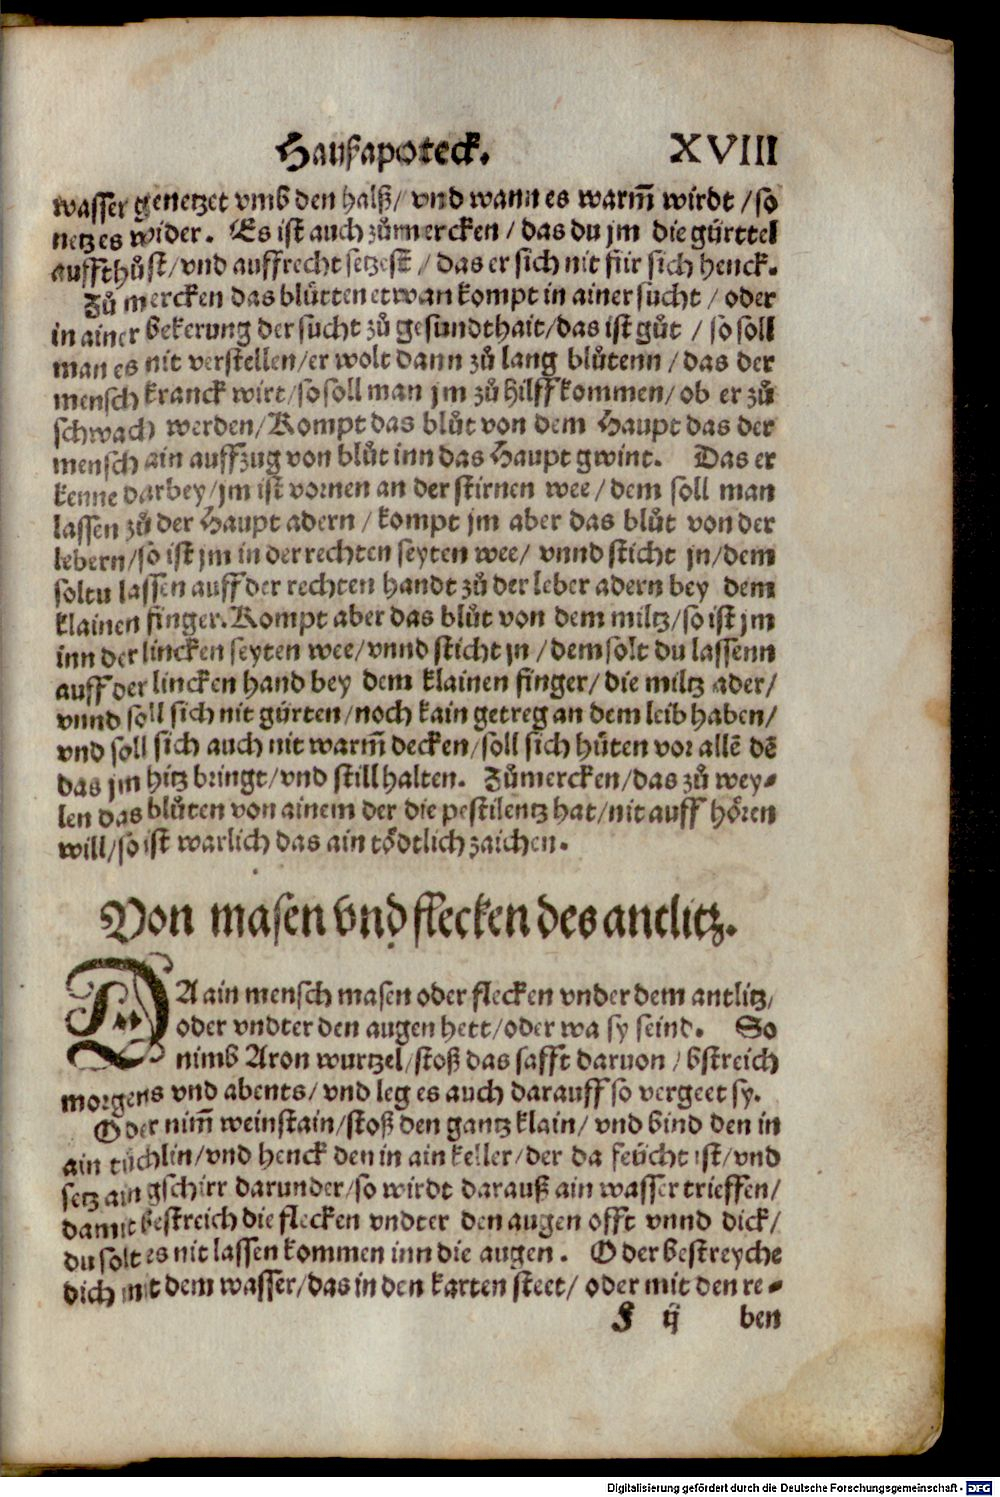 Haußapoteck. XVIII
wasser genetzet vmb den halß/ vnd wann es warm̃ wirdt / so
netz es wider. Es ist auch zůmercken / das du jm die gürttel
auffthůst/ vnd auffrecht setzest / das er sich nit für sich henck.
Zů mercken das blůtten etwan kompt in ainer sucht / oder
in ainer bekerung der sucht zů gesundthait/ das ist gůt / so soll
man es nit verstellen/ er wolt dann zů lang blůtenn / das der
mensch kranck wirt/ so soll man jm zů hilff kommen/ ob er zů
schwach werden/ Kompt das blůt von dem Haupt das der
mensch ain auffzug von blůt inn das Haupt gwint. Das er
kenne darbey/ jm ist vornen an der stirnen wee / dem soll man
lassen zů der Haupt adern / kompt jm aber das blůt von der
lebern/ so ist jm in der rechten seyten wee/ vnnd sticht jn/ dem
soltu lassen auff der rechten handt zů der leber adern bey dem
klainen finger. Kompt aber das blůt von dem miltz/ so ist jm
inn der lincken seyten wee/ vnnd sticht jn / dem solt du lassenn
auff der lincken hand bey dem klainen finger/ die miltz ader/
vnnd soll sich nit gürten/ noch kain getreg an dem leib haben/
vnd soll sich auch nit warm̃ decken/ soll sich hůten vor allẽ dẽ
das jm hitz bringt/ vnd still halten. Zůmercken/ das zů wey⸗
len das blůten von ainem der die pestilentz hat/ nit auff hören
will/ so ist warlich das ain tödtlich zaichen.
Von masen vnd flecken des antlitz.
DA ain mensch masen oder flecken vnder dem antlitz/
oder vndter den augen hett/ oder wa sy seind. So
nimb Aron wurtzel/ stoß das safft daruon / bstreich
morgens vnd abents/ vnd leg es auch darauff so vergeet sy.
Oder nim̃ weinstain/ stoß den gantz klain/ vnd bind den in
ain tůchlin/ vnd henck den in ain keller/ der da feücht ist/ vnd
setz ain gschirr darunder/ so wirdt darauß ain wasser trieffen/
damit bestreich die flecken vndter den augen offt vnnd dick/
du solt es nit lassen kommen inn die augen. Oder bestreyche
dich mit dem wasser/ das in den karten steet/ oder mit den re⸗
F ij ben
Digitalisierung gefördert durch die Deutsche Forschungsgemeinschaft - DFG